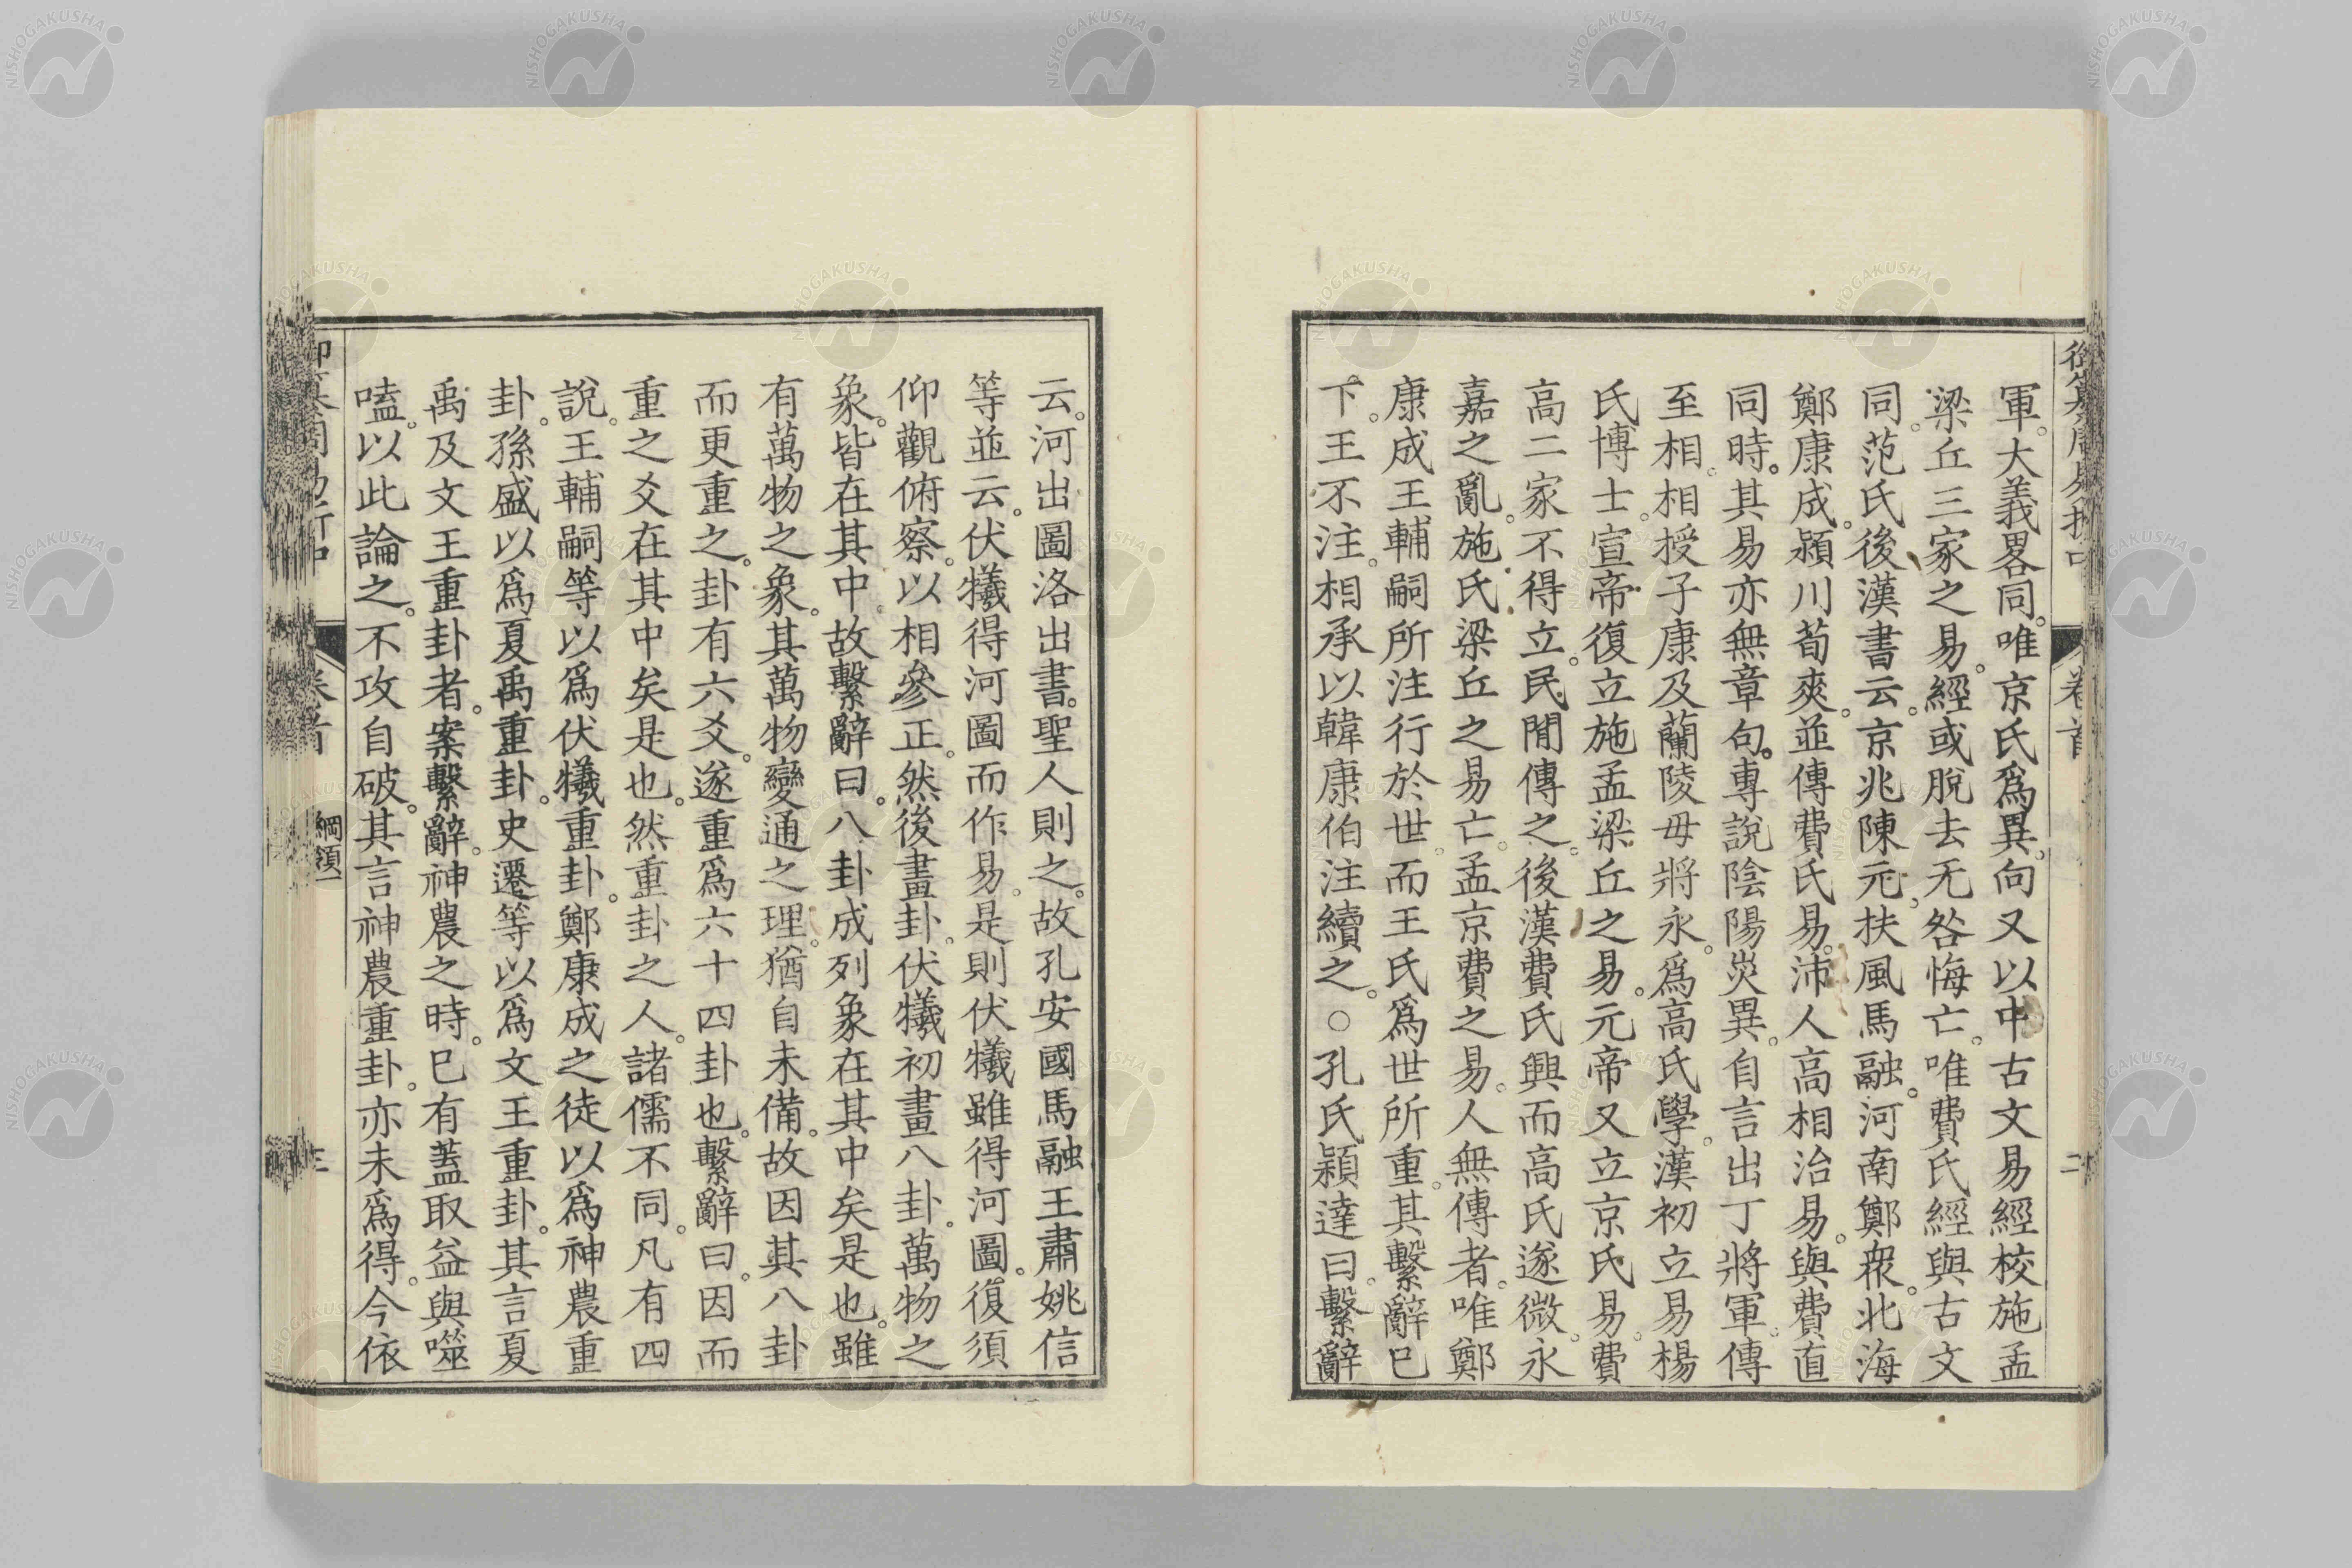 軍。大義畧同。唯京氏爲異。向又以中古文易經校施孟
梁丘三家之易。經或脫去无咎悔亡。唯費氏經與古文
同。范氏後漢書云。京兆陳元。扶風馬融。河南鄭衆。北海
鄭康成。潁川荀爽。並傳費氏易。沛人高相治易。與費直
同時。其易亦無章句。專說陰陽災異。自言出丁將軍。傳
至相。相授子康及蘭陵毋將永。爲高氏學。漢初立易楊
氏博士。宣帝復立施孟梁丘之易。元帝又立京氏易。費
高二家不得立。民閒傳之。後漢費氏興而高氏遂微。永
嘉之亂。施氏梁丘之易亡。孟京費之易。人無傳者。唯鄭
康成王輔嗣所注行於世。而王氏爲世所重。其繫辭已
下。王不注。相承以韓康伯注續之。○孔氏穎達曰。繫辭
云。河出圖洛出書。聖人則之。故孔安國馬融王肅姚信
等並云。伏犧得河圖而作易。是則伏犧雖得河圖。復須
仰觀俯察。以相參正。然後畫卦。伏犧初畫八卦。萬物之
象。皆在其中。故繫辭曰。八卦成列象在其中矣是也。雖
有萬物之象。其萬物變通之理。猶自未備。故因其八卦
而更重之。卦有六爻。遂重爲六十四卦也。繫辭曰。因而
重之爻在其中矣是也。然重卦之人。諸儒不同。凡有四
說。王輔嗣等以爲伏犧重卦。鄭康成之徒以爲神農重
卦。孫盛以爲夏禹重卦。史遷等以爲文王重卦。其言夏
禹及文王重卦者。案繫辭。神農之時。已有蓋取益與噬
嗑。以此論之。不攻自破。其言神農重卦。亦未爲得。今依
卷首
綱領一
三